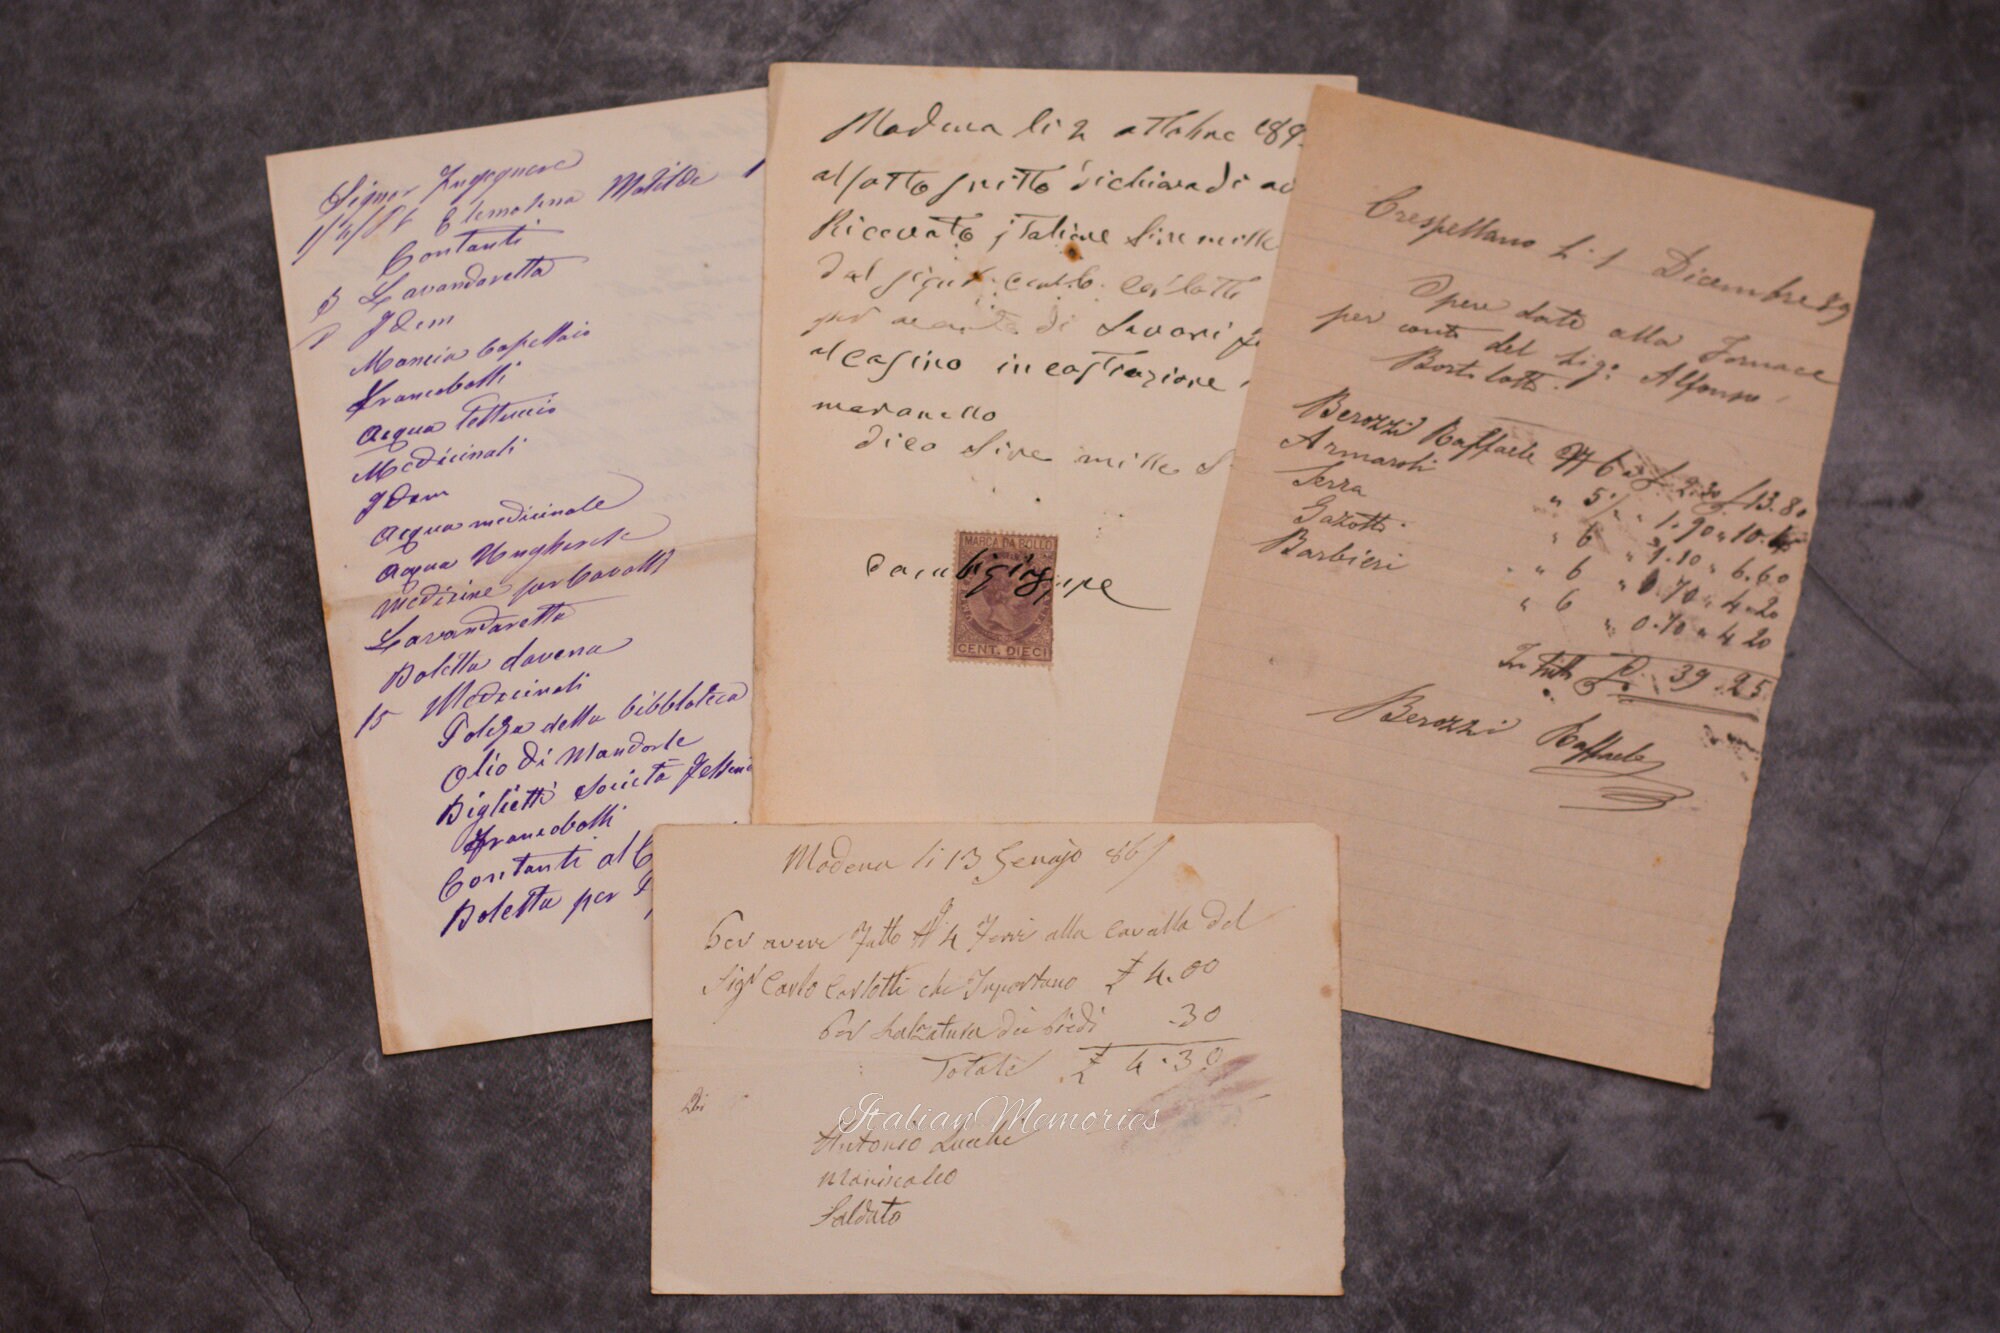 Signor Ingegnere
Elemosina Matilde
Contanti
Lavandaretta
Idem
Mancia Capellaio
Francobolli
Acqua Tettuccio
Medicinali
Idem
Acqua medicinale
Acqua Ungherese
Medicine per Cavalli
Lavandaretta
Boletta d'avena
15 Medicinali
Polizza della bibblioteca
Olio di Mandorle
Biglietti Società
Francobolli
Contanti al
Boletta per
Modena li 2 ottobre 189
al sotto scritto dichiara di
Ricevuto italiane lire mille
dal signor Carlo Carlotti
per aconto di lavori
al casino in costruzione
maranello
dico lire mille
MARCA DA BOLLO
CENT. DIECI
Crespellano li 1 Dicembre 89
Opere date alla Fornace
per conto del Sig. Alfonso
Bortolotti.
Berozzi Raffaele N 6 £ 2.30 £ 13.80
Armaroli " 5 1/2 " 1.90 " 10.45
Serra " 6 " 1.10 " 6.60
Gazotti " 6 " 0.70 " 4.20
Barbieri " 6 " 0.70 " 4.20
In tutto £. 39.25
Berozzi Raffaele
Modena li 13 Genajo 86
Per avere fatto N 4 Ferri alla Cavalla del
Sigr Carlo Carlotti che Inportano £ 4.00
Per Salzatura dei Piedi .30
Totale £ 4.30
Italian Memories
Antonio
Maniscalco
Saldato